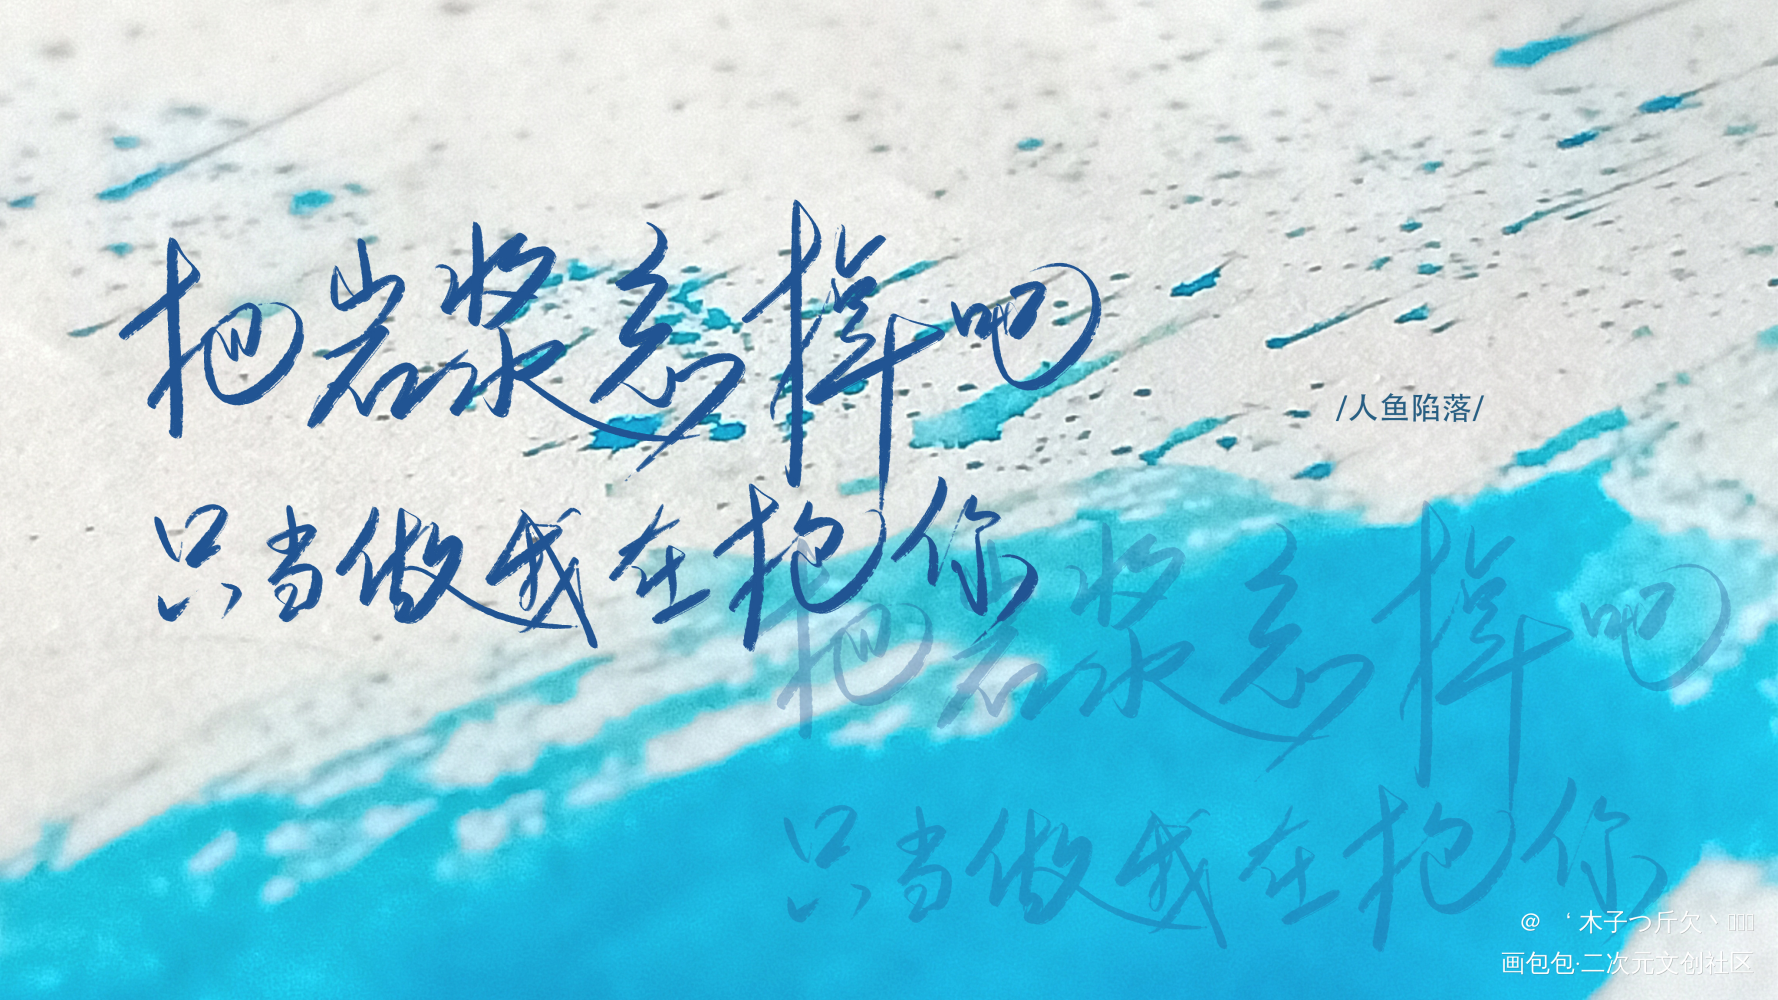 把岩浆忘掉吧
/人鱼陷落/
只当做我在抱你
把岩浆忘掉吧
只当做我在抱你
@ ‘ 木子つ斤欠丶
画包包·二次元文创社区